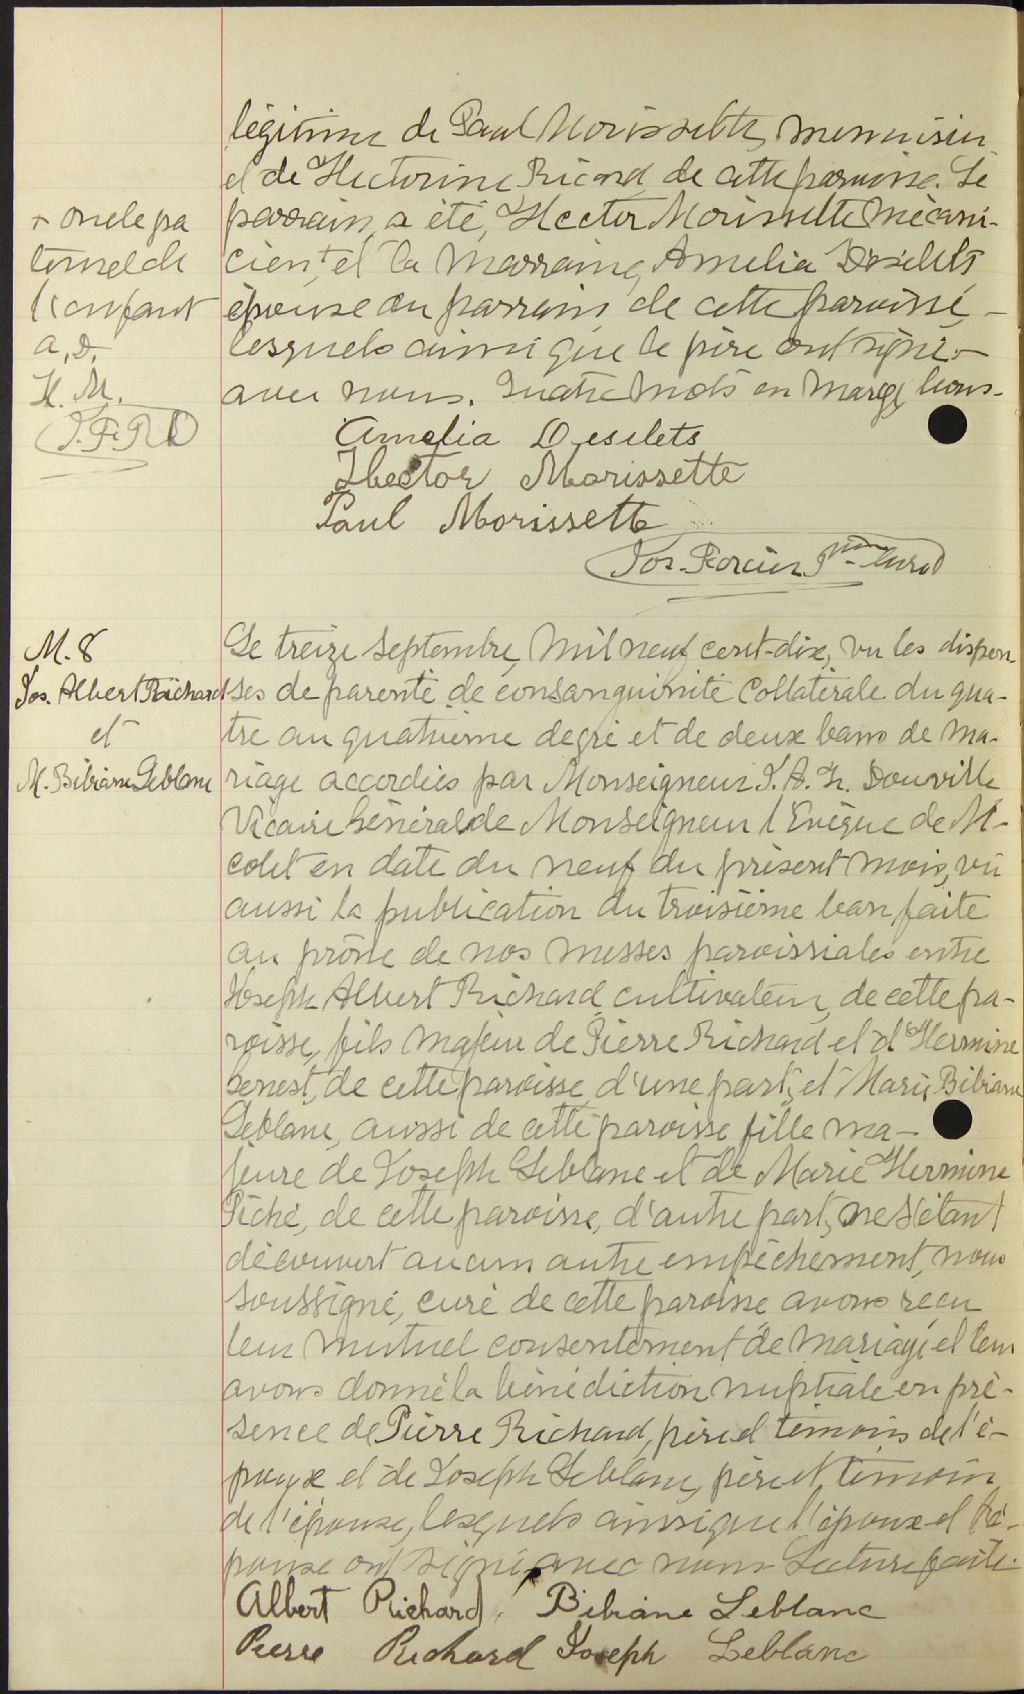 légitime de Paul Morissette, menuisier
et de Hectorine Ricard, de cette paroisse. Le
parrain, a été, Hector Morissette mécani-
cien, + et la marraine, Amelia Desilets
épouse du parrain, de cette paroisse,
lesquels ainsi que le père ont signé
avec nous. Quatre mots en marge bons.
+ oncle pa
ternel de
l'enfant
A. D.
H. M.
J. F. P.
Amelia Desilets
Hector Morissette
Paul Morissette
Jos. Forcier, Ptre Curé
M. 8
Jos. Albert Richard
et
M. Bibiane Leblanc
Le treize septembre, mil neuf cent-dix, vu les dispen
ses de parenté de consanguinité collatérale du qua-
tre au quatrième degré et de deux bans de ma-
riage accordées par Monseigneur J. A. I. Douville
Vicaire Général de Monseigneur l'Evêque de Ni-
colet en date du neuf du présent mois, vu
aussi la publication du troisième ban faite
au prône de nos messes paroissiales entre
Joseph Albert Richard, cultivateur, de cette pa-
roisse, fils majeur de Pierre Richard et d'Hermine
Senest, de cette paroisse, d'une part, et Marie Bibiane
Leblanc, aussi de cette paroisse fille ma-
jeure de Joseph Leblanc et de Marie Hermine
Piché, de cette paroisse, d'autre part, ne s'étant
découvert aucun autre empêchement, nous
soussigné, curé de cette paroisse avons reçu
leur mutuel consentement de mariage et leur
avons donné la bénédiction nuptiale en pré-
sence de Pierre Richard, père et témoin de l'é-
poux et de Joseph Leblanc, père et témoin
de l'épouse, lesquels ainsi que l'époux et l'é-
pouse ont signé avec nous. Lecture faite.
Albert Richard Bibiane Leblanc
Pierre Richard Joseph Leblanc